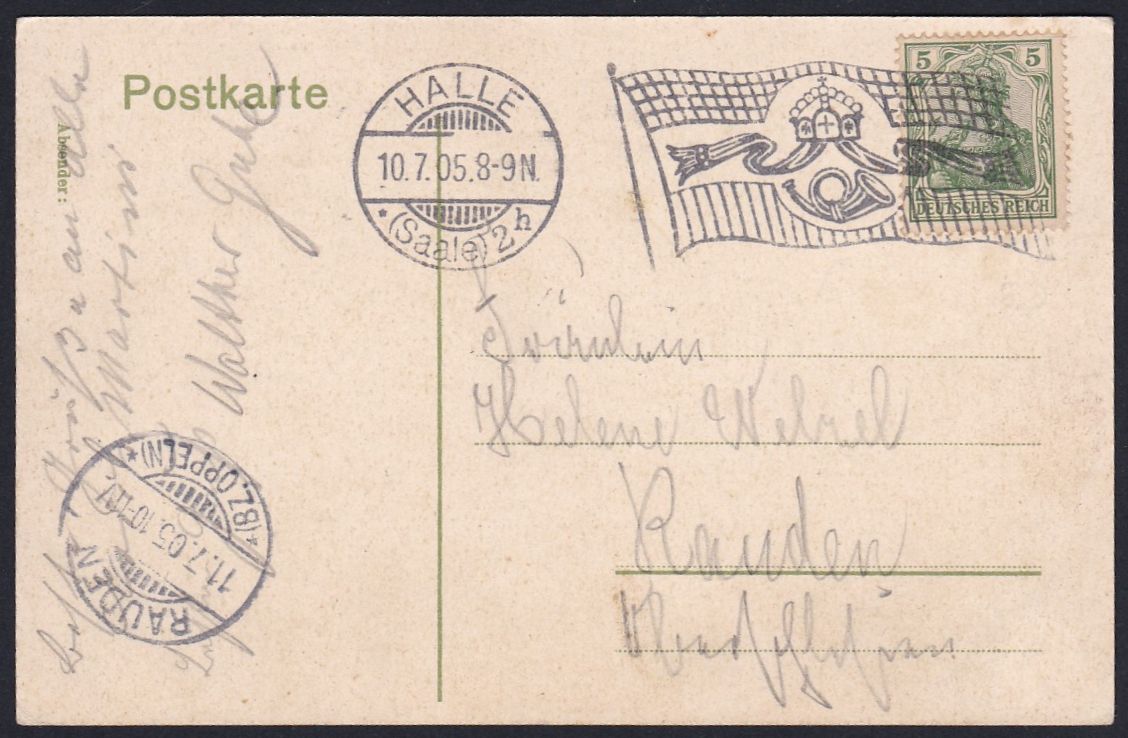 Postkarte
Absender:
HALLE
10.7.05.8-9N.
* (Saale) 2 h
5 5
DEUTSCHES REICH
Fräulein
Helene Wetzel
Rauden
Oberschlesien
Grüße an alle
Martini
Walther
RAUDEN
11.7.05.10-11V.
*(BZ. OPPELN)*